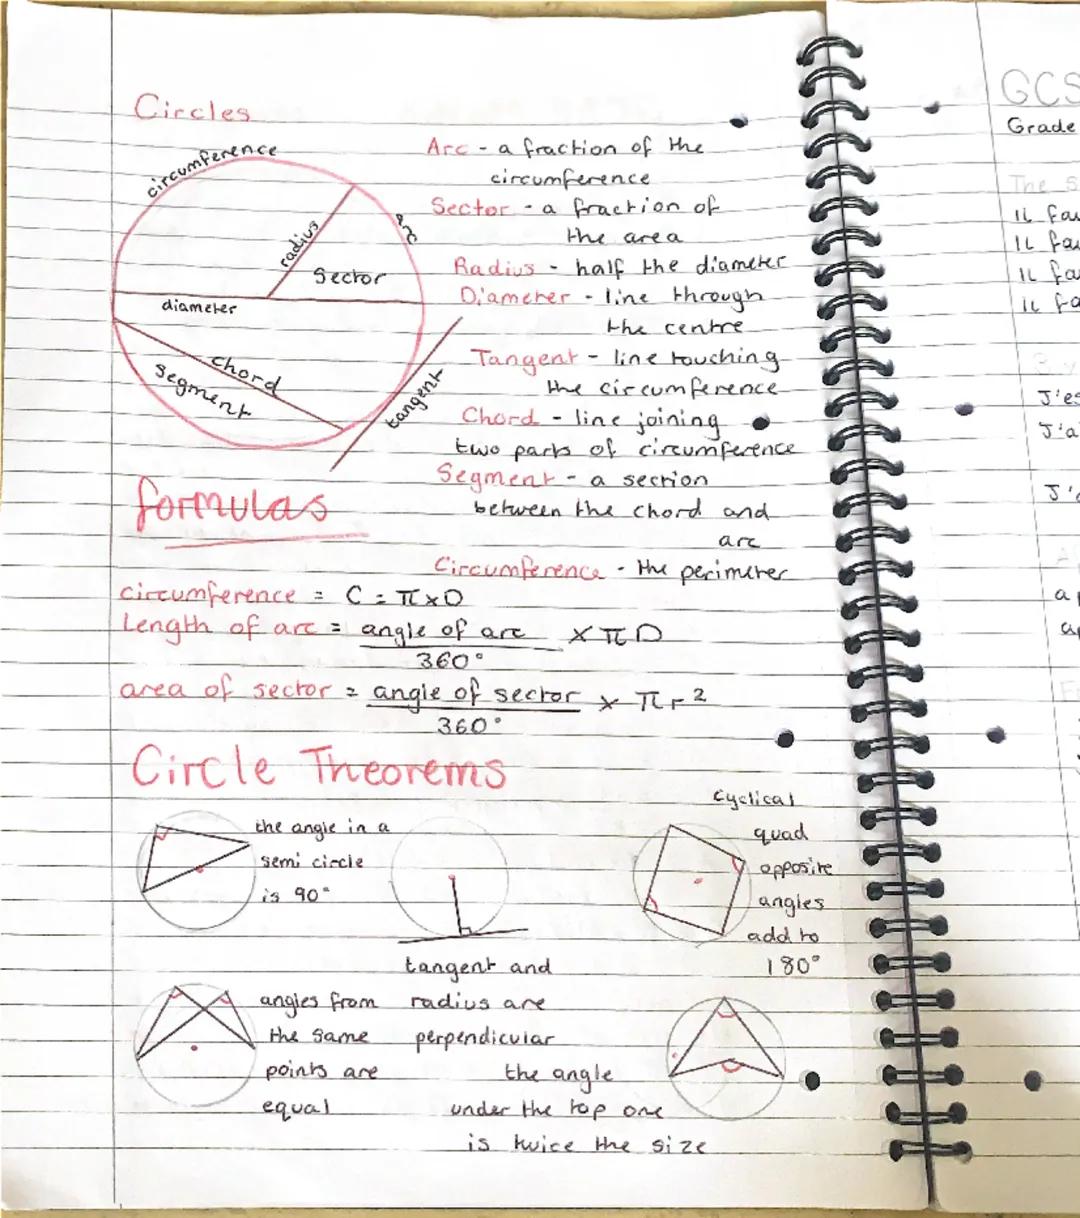 Circles
circumference
radius
arc
Sector
diameter
chord
segment
tangent
Arc - a fraction of the
circumference
Sector - a fraction of
the area
Radius - half the diameter
Diameter - line through
the centre
Tangent - line touching
the circumference
Chord - line joining
two parts of circumference
Segment - a section
between the chord and
arc
Circumference - the perimeter
formulas
circumference = C = π x D
Length of arc = angle of arc x π D
360°
area of sector = angle of sector x π r²
360°
Circle Theorems
the angle in a
semi circle
is 90°
tangent and
radius are
perpendicular
cyclical
quad
opposite
angles
add to
180°
angles from
the same
points are
equal
the angle
under the top one
is twice the size
GCS
Grade
The
il fau
il fau
il fa
il fa
J'es
J'a
J'
a